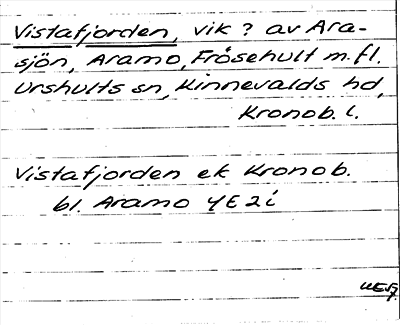 Vistafjorden, vik? av Ara-
sjön, Aramo, Frösehult m.fl.
Urshults sn, Kinnevalds hd,
Kronob. l.
Vistafjorden ek Kronob.
bl. Aramo 4E2i